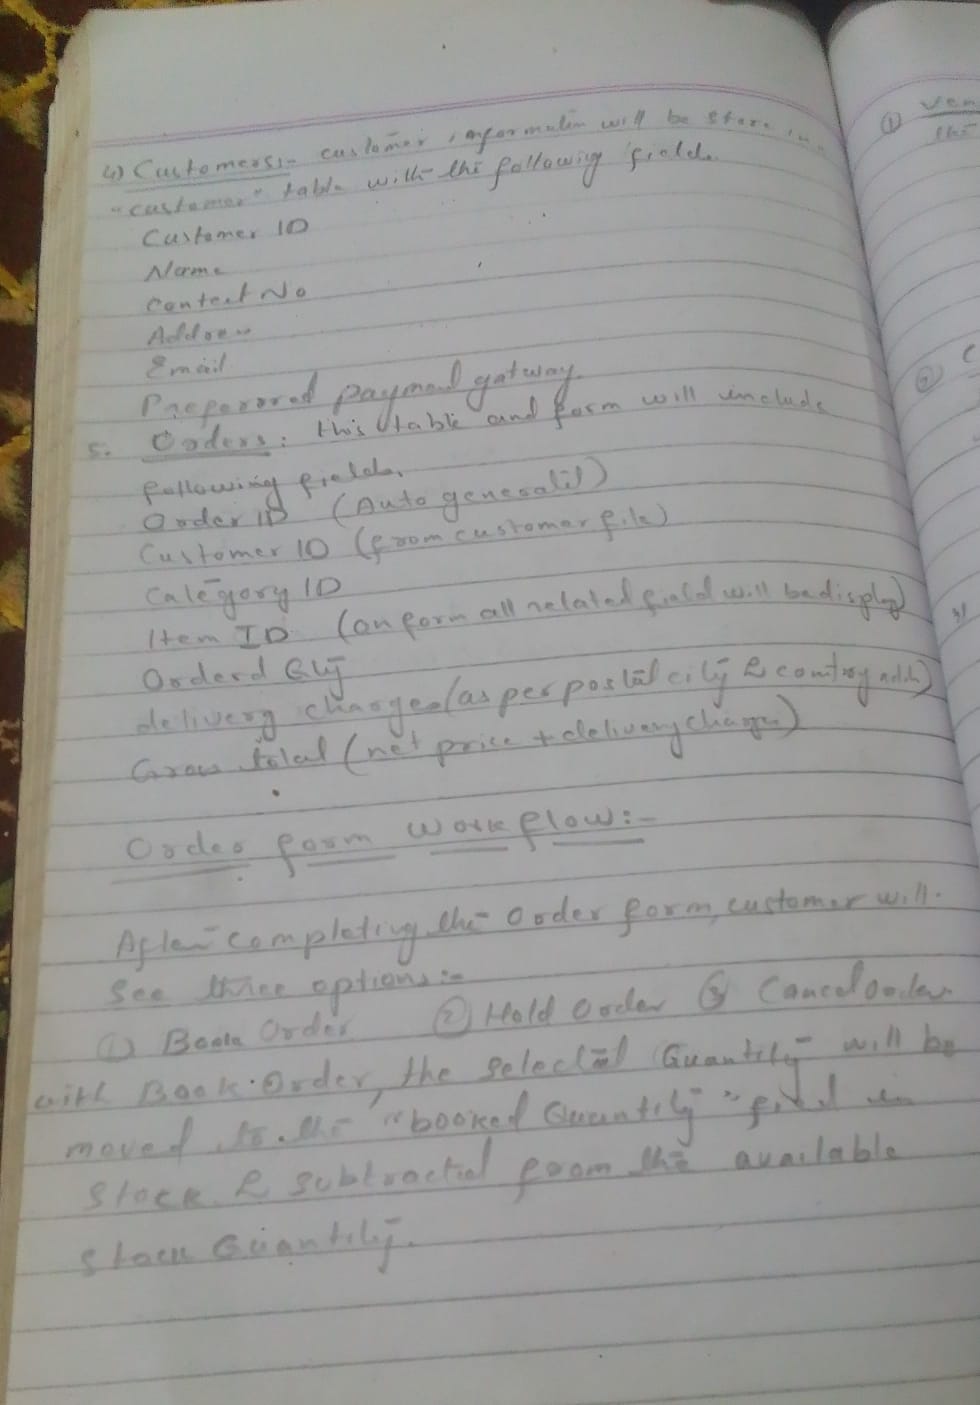 4) Customers:- customer information will be store in
"customer" table with the following fields
Customer ID
Name
Contact No
Address
Email
Preferred payment gatway.
5. Orders: this table and form will include
following fields.
Order ID (Auto generatit)
Customer ID (from customer file)
Category ID
Item ID (on form all related field will be display)
Orderd Qty
delivery charges (as per postal city & country add.)
Gross total (net price + delivery charges)
Order form work flow:-
After completing the order form, customer will
See three options:-
① Book Order ② Hold Order ③ Cancel order
with Book Order, the selected Quantity will be
moved to the "booked Quantity" field in
Stock & subtracted from the available
stock Quantity.
① Ven
thi
② C
3)